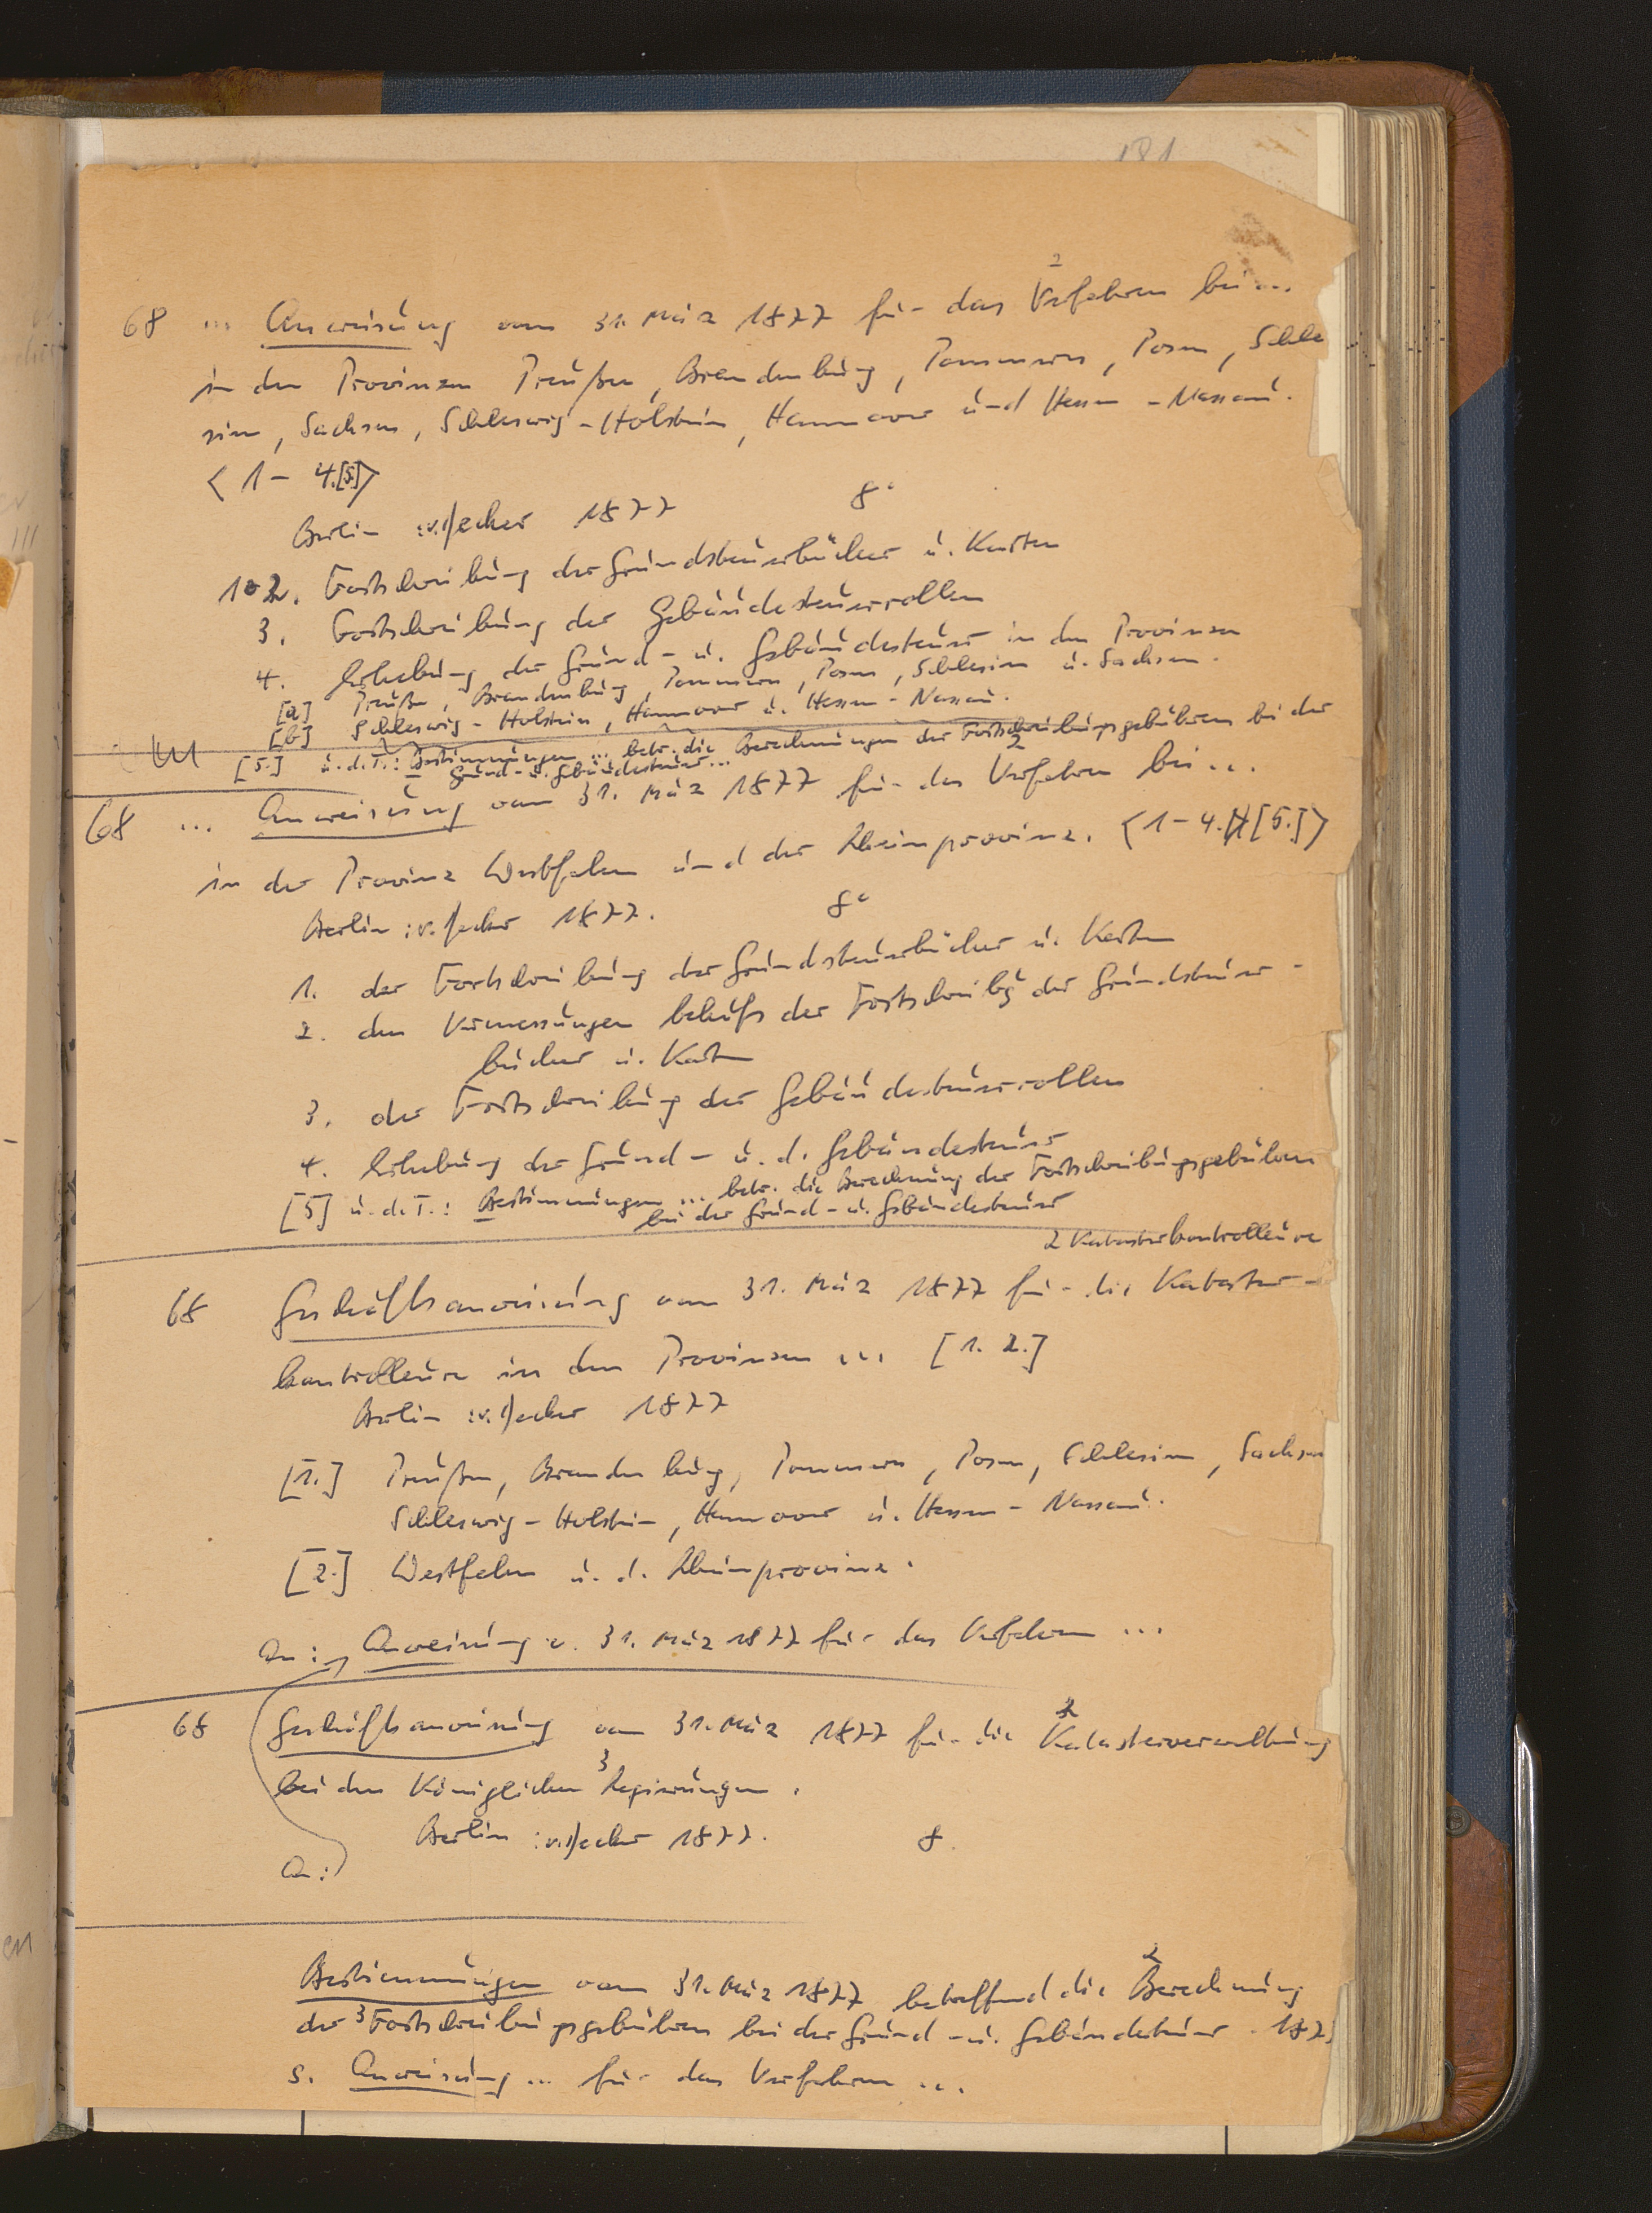 181
68 ... Anweisung vom 31. März 1877 für das Verfahren bei ...
2
in den Provinzen Preußen, Brandenburg, Pommern, Posen, Schle
sien, Sachsen, Schleswig-Holstein, Hannover und Hessen-Nassau.
<1-4.[5]>
Berlin: v. Decker 1877 8°
1 2. Fortschreibung der Grundsteuerbücher u. Karten
3. Fortschreibung der Gebäudesteuerrollen
4. Erhebung der Grund- u. Gebäudesteuer in den Provinzen
[a] Preußen, Brandenburg, Pommern, Posen, Schlesien u. Sachsen.
[b] Schleswig-Holstein, Hannover u. Hessen-Nassau.
[5.] u. d. T.: Bestimmungen ... betr. die Berechnungen der Fortschreibungsgebühren bei der
Grund- u. Gebäudesteuer...
68 ... Anweisung vom 31. März 1877 für das Verfahren bei ...
2
in der Provinz Westfalen und der Rheinprovinz. <1-4.[5.]>
Berlin: v. Decker 1877. 8°
1. der Fortschreibung der Grundsteuerbücher u. Karten
2. den Vermessungen behufs der Fortschreibg der Grundsteuer-
bücher u. Karten
3. der Fortschreibung der Gebäudesteuerrollen
4. Erhebung der Grund- u. d. Gebäudesteuer
[5] u. d. T.: Bestimmungen ... betr. die Berechnung der Fortschreibungsgebühren
bei der Grund- u. Gebäudesteuer
2 Katasterkontrolleure
68 Geschäftsanweisung vom 31. März 1877 für die Kataster-
kontrolleure in den Provinzen ... [1. 2.]
Berlin: v. Decker 1877
[1.] Preußen, Brandenburg, Pommern, Posen, Schlesien, Sachsen
Schleswig-Holstein, Hannover u. Hessen-Nassau.
[2.] Westfalen u. d. Rheinprovinz.
An: Anweisung v. 31. März 1877 für das Verfahren ...
68 Geschäftsanweisung vom 31. März 1877 für die Katasterverwaltung
2
bei den Königlichen 3 Regierungen.
Berlin: v. Decker 1877. 8.
An:
Bestimmungen vom 31. März 1877 betreffend die 2 Berechnung
der 3 Fortschreibungsgebühren bei der Grund- u. Gebäudesteuer. 187
s. Anweisung ... für das Verfahren ...